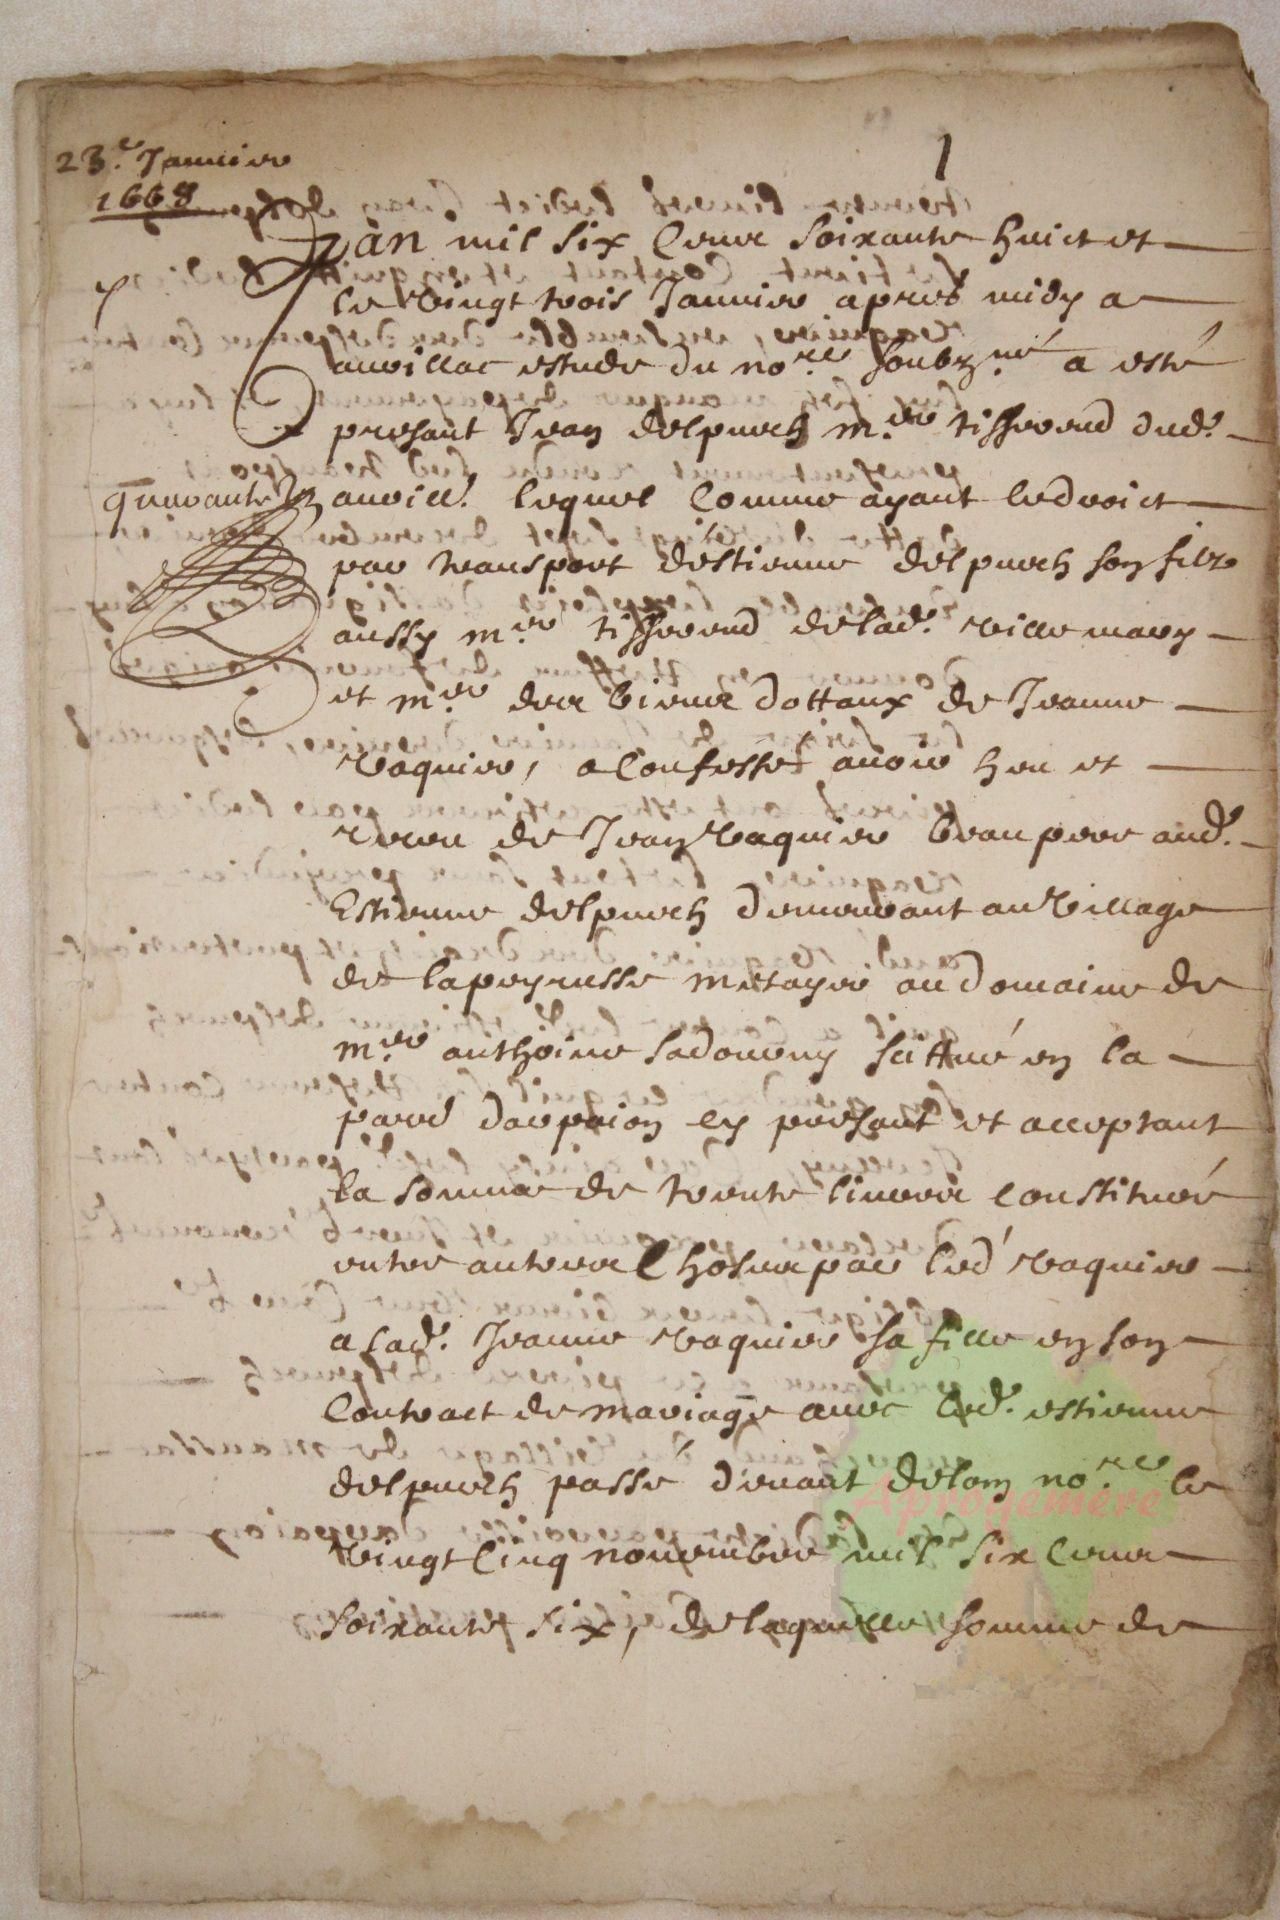 1
23.e Januier
1668
Lan mil six Cens soixante huict et
le vingt trois Januier apres midy a
auoillac estude du no.re soubz.né a esté
presant Jean delpuech m.re tisserend dud.
quarante
auoill. lequel Comme ayant ledroict
par transport destienne delpuech son filz
aussy m.re tisserend delad. ville mary
et m.re des biens dottaux de Jeanne
vaquier, a Confessé auoir heu et
receu de Jean vaquier beau pere aud.
Estienne delpuech demeurant au village
de lapeyrusse metayer au domaine de
m.re anthoine sadourny scittué en la
parr darpaion ey presant et acceptant
la somme de trente liures constituée
entre autres Choses par led vaquier
a lad. Jeanne vaquier sa fille en son
Contract de mariage auec led. estienne
delpuech passé deuant no.re le
vingt Cinq nouembre mil six Cens
soixante six, de laquelle somme de
Aprogemere